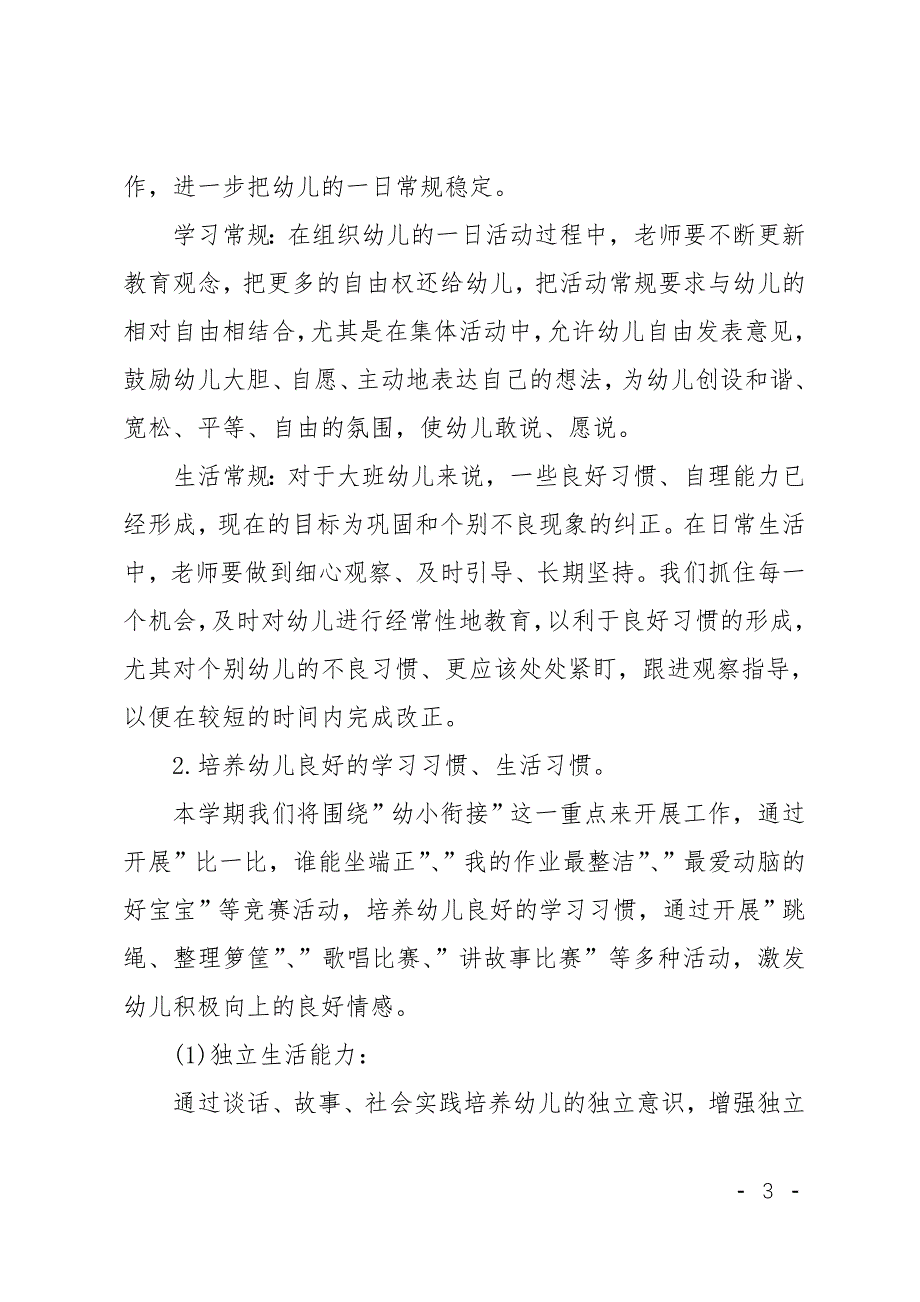 作，进一步把幼儿的一日常规稳定。
学习常规：在组织幼儿的一日活动过程中，老师要不断更新
教育观念，把更多的自由权还给幼儿，把活动常规要求与幼儿的
相对自由相结合，尤其是在集体活动中，允许幼儿自由发表意见，
鼓励幼儿大胆、自愿、主动地表达自己的想法，为幼儿创设和谐、
宽松、平等、自由的氛围，使幼儿敢说、愿说。
生活常规：对于大班幼儿来说，一些良好习惯、自理能力已
经形成，现在的目标为巩固和个别不良现象的纠正。在日常生活
中，老师要做到细心观察、及时引导、长期坚持。我们抓住每一
个机会，及时对幼儿进行经常性地教育，以利于良好习惯的形成，
尤其对个别幼儿的不良习惯、更应该处处紧盯，跟进观察指导，
以便在较短的时间内完成改正。
2.培养幼儿良好的学习习惯、生活习惯。
本学期我们将围绕”幼小衔接”这一重点来开展工作，通过
开展”比一比，谁能坐端正”、”我的作业最整洁”、”最爱动脑的
好宝宝”等竞赛活动，培养幼儿良好的学习习惯，通过开展”跳
绳、整理箩筐”、”歌唱比赛、”讲故事比赛”等多种活动，激发
幼儿积极向上的良好情感。
(1)独立生活能力：
通过谈话、故事、社会实践培养幼儿的独立意识，增强独立
- 3 -